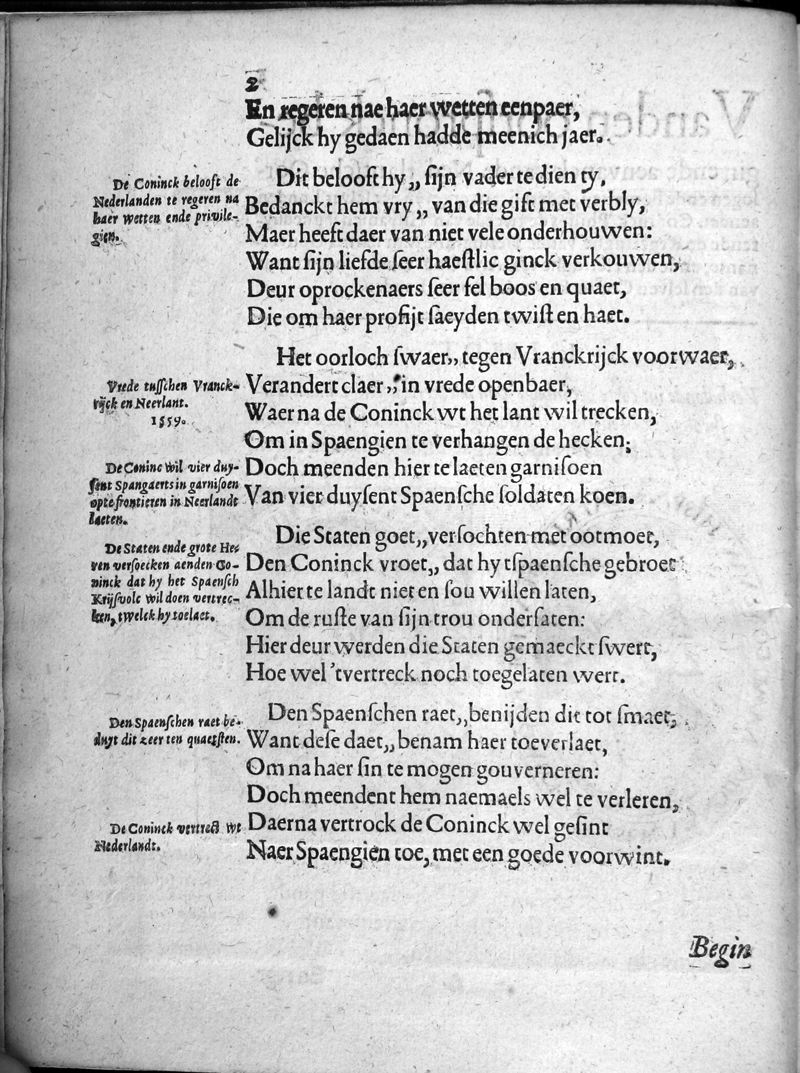 2
En regeren nae haer wetten eenpaer,
Gelijck hy gedaen hadde meenich jaer.
De Coninck belooft de
Nederlanden te regeren na
haer wetten ende privile-
gien.
Dit belooft hy,, ſijn vader te dien ty,
Bedanckt hem vry,, van die gift met verbly,
Maer heeft daer van niet vele onderhouwen:
Want ſijn liefde ſeer haeſtlic ginck verkouwen,
Deur oprockenaers ſeer fel boos en quaet,
Die om haer profijt ſaeyden twiſt en haet.
Vrede tuſſchen Vranck-
rijck en Neerlant.
1559.
Het oorloch ſwaer,, tegen Vranckrijck voorwaer,
Verandert claer,, in vrede openbaer,
Waer na de Coninck wt het lant wil trecken,
Om in Spaengien te verhangen de hecken;
De Coninc wil vier duy-
ſent Spangaerts in garniſoen
op te frontieren in Neerlandt
laeten.
Doch meenden hier te laeten garniſoen
Van vier duyſent Spaenſche ſoldaten koen.
De Staten ende grote Hee
ren verſoecken aenden Co-
ninck dat hy het Spaenſch
Krijſvolc wil doen vertrec-
ken, twelck hy toelaet.
Die Staten goet,, verſochten met ootmoet,
Den Coninck vroet,, dat hy tſpaenſche gebroet
Alhier te landt niet en ſou willen laten,
Om de ruſte van ſijn trou onderſaten:
Hier deur werden die Staten gemaeckt ſwert,
Hoe wel 'tvertreck noch toegelaten wert.
Den Spaenſchen raet be-
duyt dit zeer ten quaetſten.
Den Spaenſchen raet,, benijden dit tot ſmaet,
Want deſe daet,, benam haer toeverlaet,
Om na haer ſin te mogen gouverneren:
Doch meendent hem naemaels wel te verleren,
De Coninck vertreckt wt
Nederlandt.
Daerna vertrock de Coninck wel geſint
Naer Spaengien toe, met een goede voorwint.
Begin